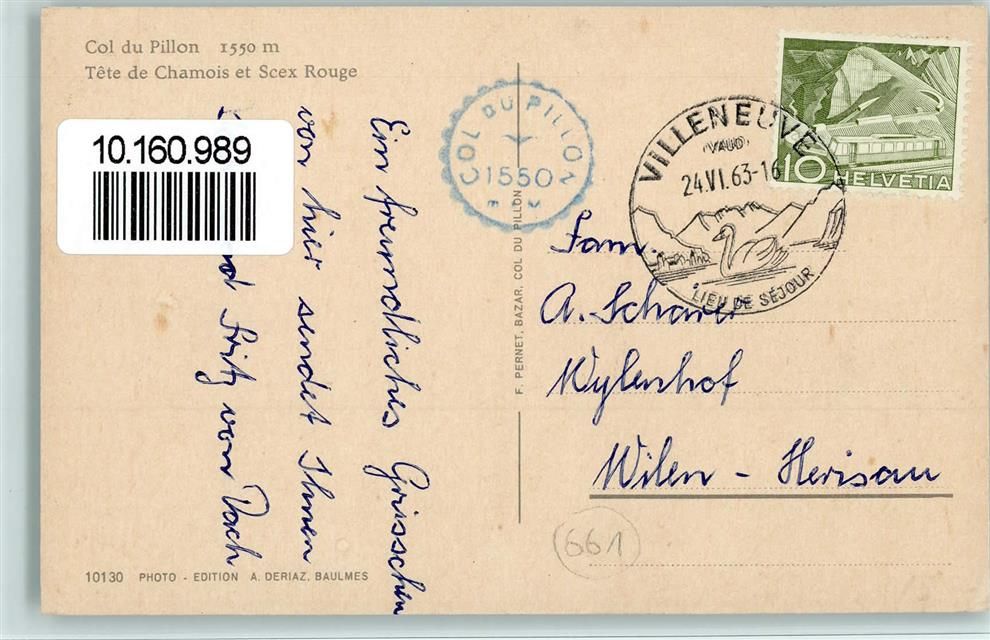 Col du Pillon 1550 m
Tête de Chamois et Scex Rouge
10.160.989
Ein freundliches Grüsschen
von hier sendet Ihnen
Fritz von Dach
10130 PHOTO - EDITION A. DERIAZ, BAULMES
COL DU PILLON
1550
F. PERNET, BAZAR, COL DU PILLON
VILLENEUVE
(VAUD)
24.VI.63-16
LIEU DE SÉJOUR
10
HELVETIA
Fam.
A. Schärer
Wylenhof
Wilen - Herisau
661